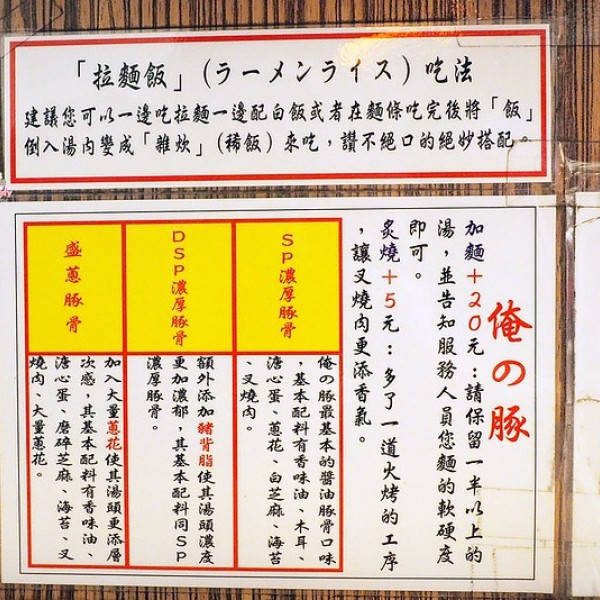 「拉麵飯」(ラーメンライス)吃法
建議您可以一邊吃拉麵一邊配白飯或者在麵條吃完後將「飯」
倒入湯內變成「雜炊」(稀飯)來吃,讚不絕口的絕妙搭配。
俺の豚
加麵+20元:請保留一半以上的
湯,並告知服務人員您麵的軟硬度
即可。
炙燒+5元:多了一道火烤的工序
,讓叉燒肉更添香氣。
SP濃厚豚骨
俺の豚最基本的醬油豚骨口味
,基本配料有香味油、木耳、
溏心蛋、蔥花、白芝麻、海苔
、叉燒肉。
DSP濃厚豚骨
額外添加豬背脂使其湯頭濃度
更加濃郁,其基本配料同SP
濃厚豚骨。
盛蔥豚骨
加入大量蔥花使其湯頭更添層
次感,其基本配料有香味油、
溏心蛋、磨碎芝麻、海苔、叉
燒肉、大量蔥花。